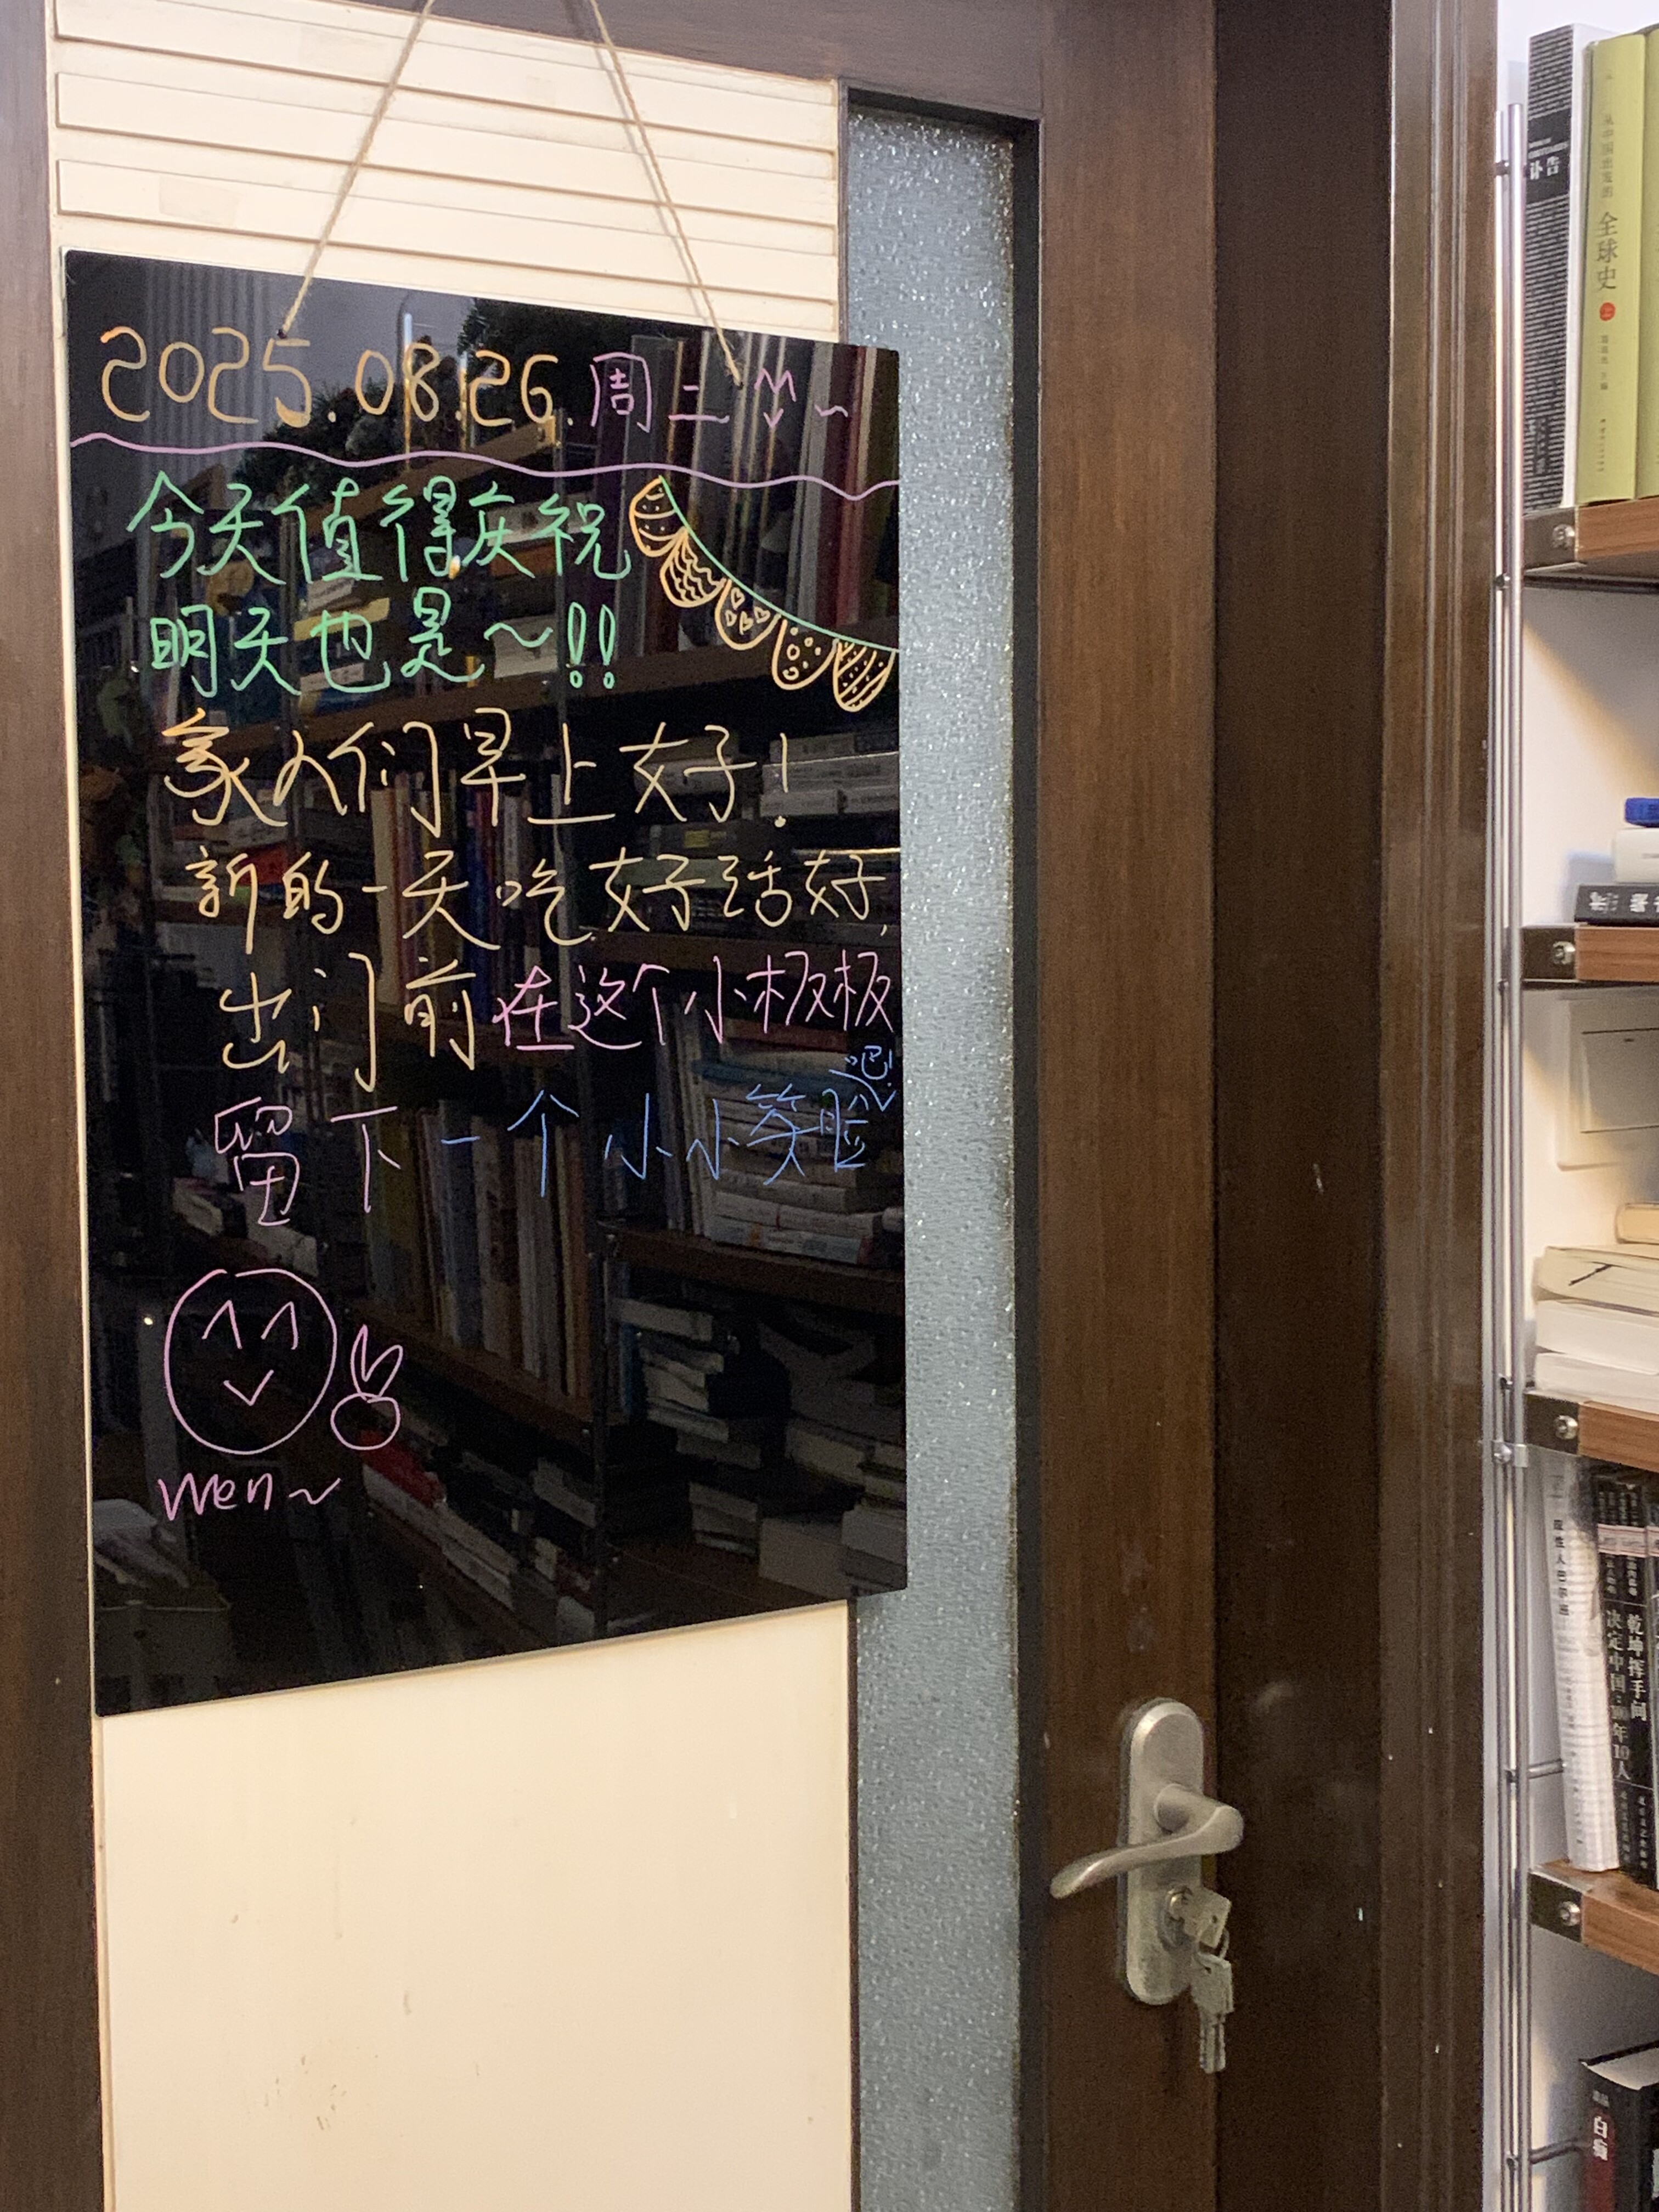 2025.08.26.周二
今天值得庆祝
明天也是~!!
家人们早上好!
新的一天吃好活好,
出门前在这个小板板
留下一个小小笑脸吧!
wen~
讣告
从中国出发的
全球史
乾坤挥手间
决定中国:10年10人
白痴